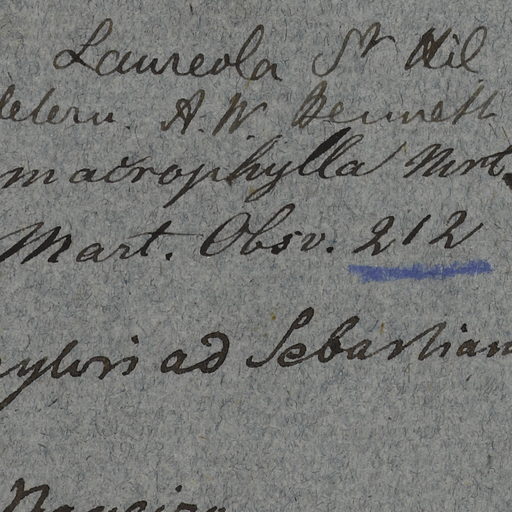 Laureola St Hil
determ. A. W. Bennett
macrophylla Mrt.
Mart. Obsv. 212
ad Sebastian